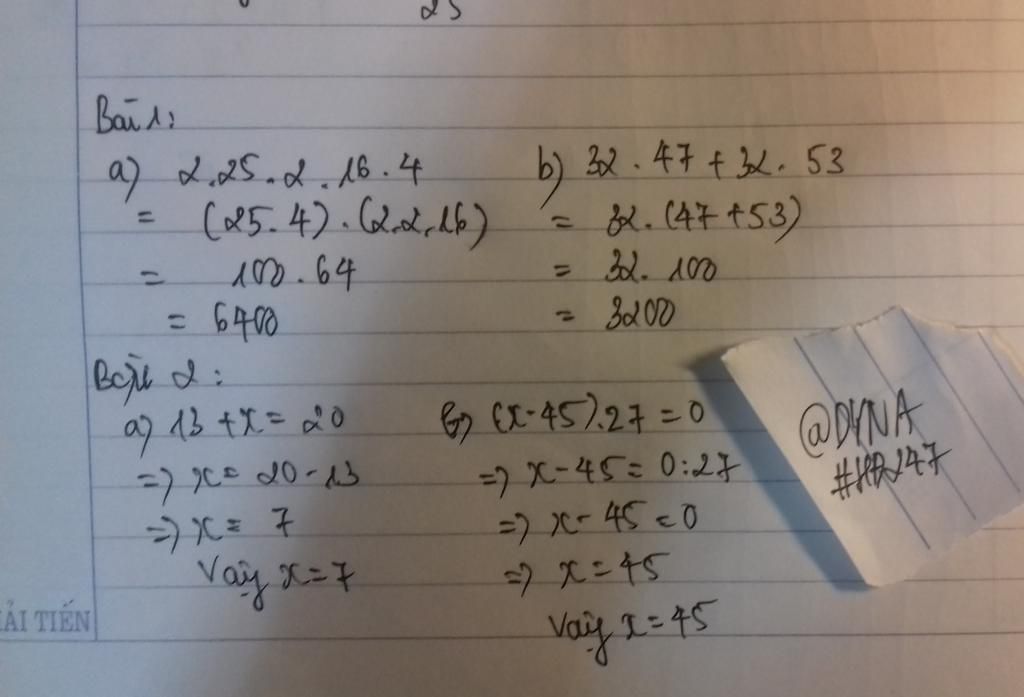 25
Bài 1:
a) 2.25.2.16.4
= (25.4).(2.2.16)
= 100.64
= 6400
b) 32.47+32.53
= 32.(47+53)
= 32.100
= 3200
Bài 2:
a) 13+x=20
=> x=20-13
=> x=7
Vậy x=7
b) (x-45).27=0
=> x-45=0:27
=> x-45=0
=> x=45
Vậy x=45
@DYNA
#HD247
ẢI TIẾN